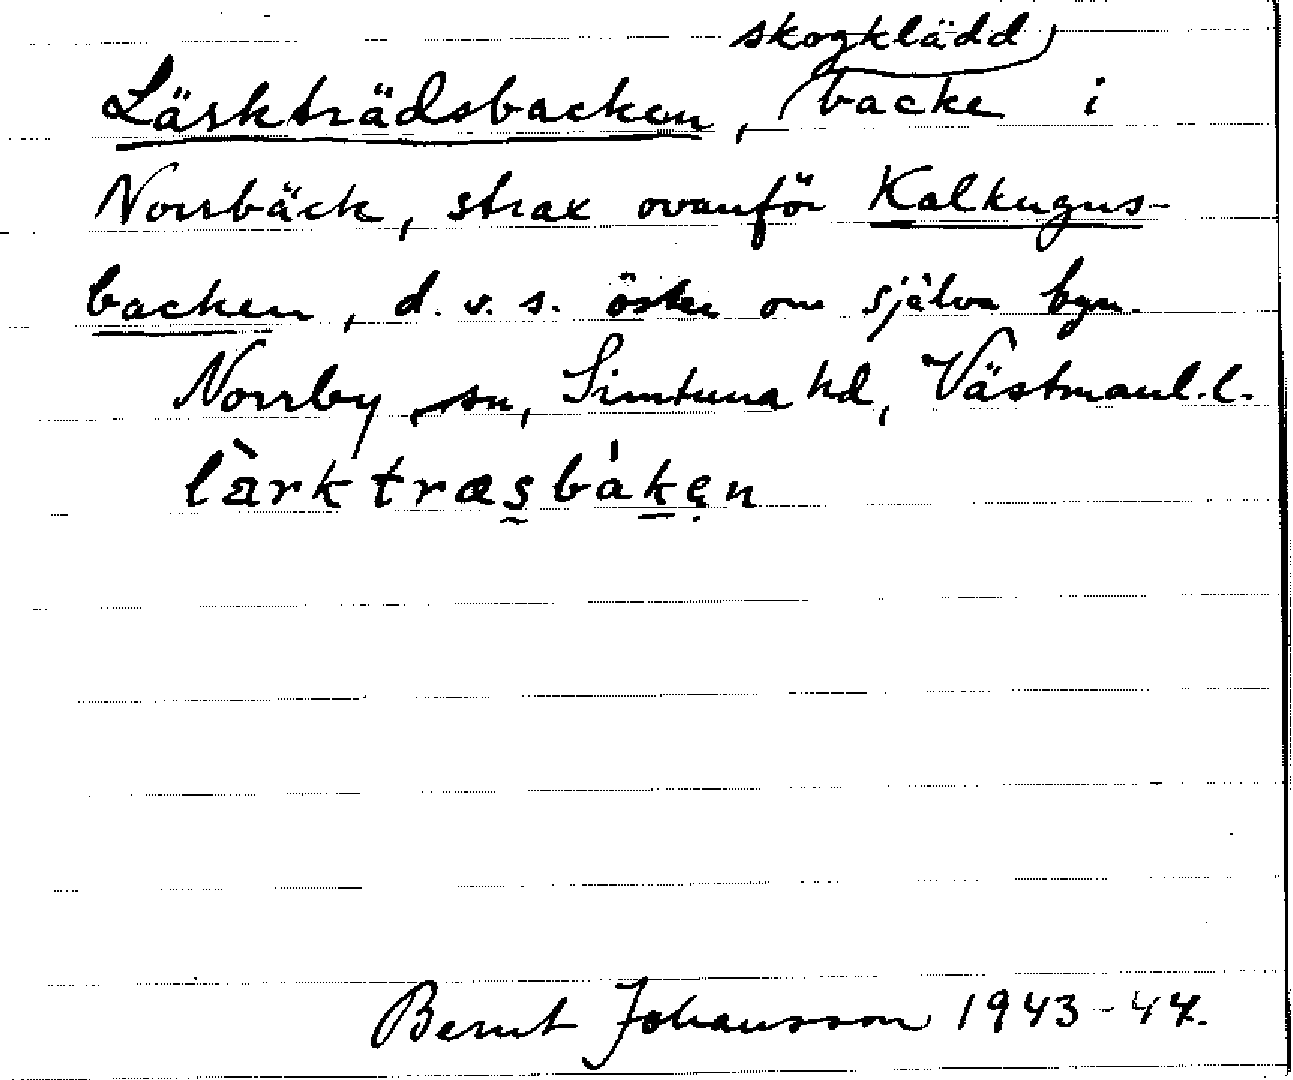 skogklädd
Lärkträdsbacken, backe i
Norrbäck, strax ovanför Kalkugns-
backen, d. v. s. öster om själva byn.
Norrby sn, Simtuna hd, Västmanl. l.
làrktræsbákęn
Bernt Johansson 1943-44.